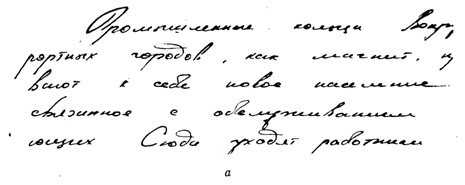 Промышленные кольца вокру
рортных городов, как магнит, п
вают к себе новое население
связанное с обслуживанием
ющих Сюда уходят работники
а